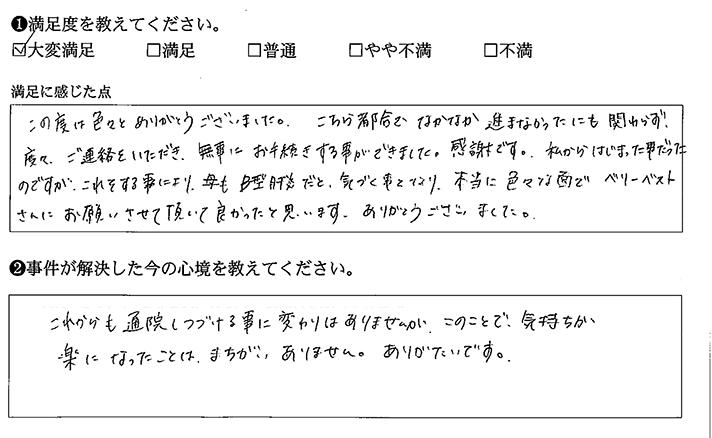 ❶満足度を教えてください。
☑大変満足 □満足 □普通 □やや不満 □不満
満足に感じた点
この度は色々とありがとうございました。こちら都合でなかなか進まなかったにも関わらず、
度々、ご連絡をいただき、無事にお手続きする事ができました。感謝です。私からはじまった事だった
のですが、これをする事により、母もB型肝炎だと、気づく事となり、本当に色々な面でベリーベスト
さんにお願いさせて頂いて良かったと思います。ありがとうございました。
❷事件が解決した今の心境を教えてください。
これからも通院しつづける事に変わりはありませんが、このことで、気持ちが
楽になったことは、まちがいありません。ありがたいです。